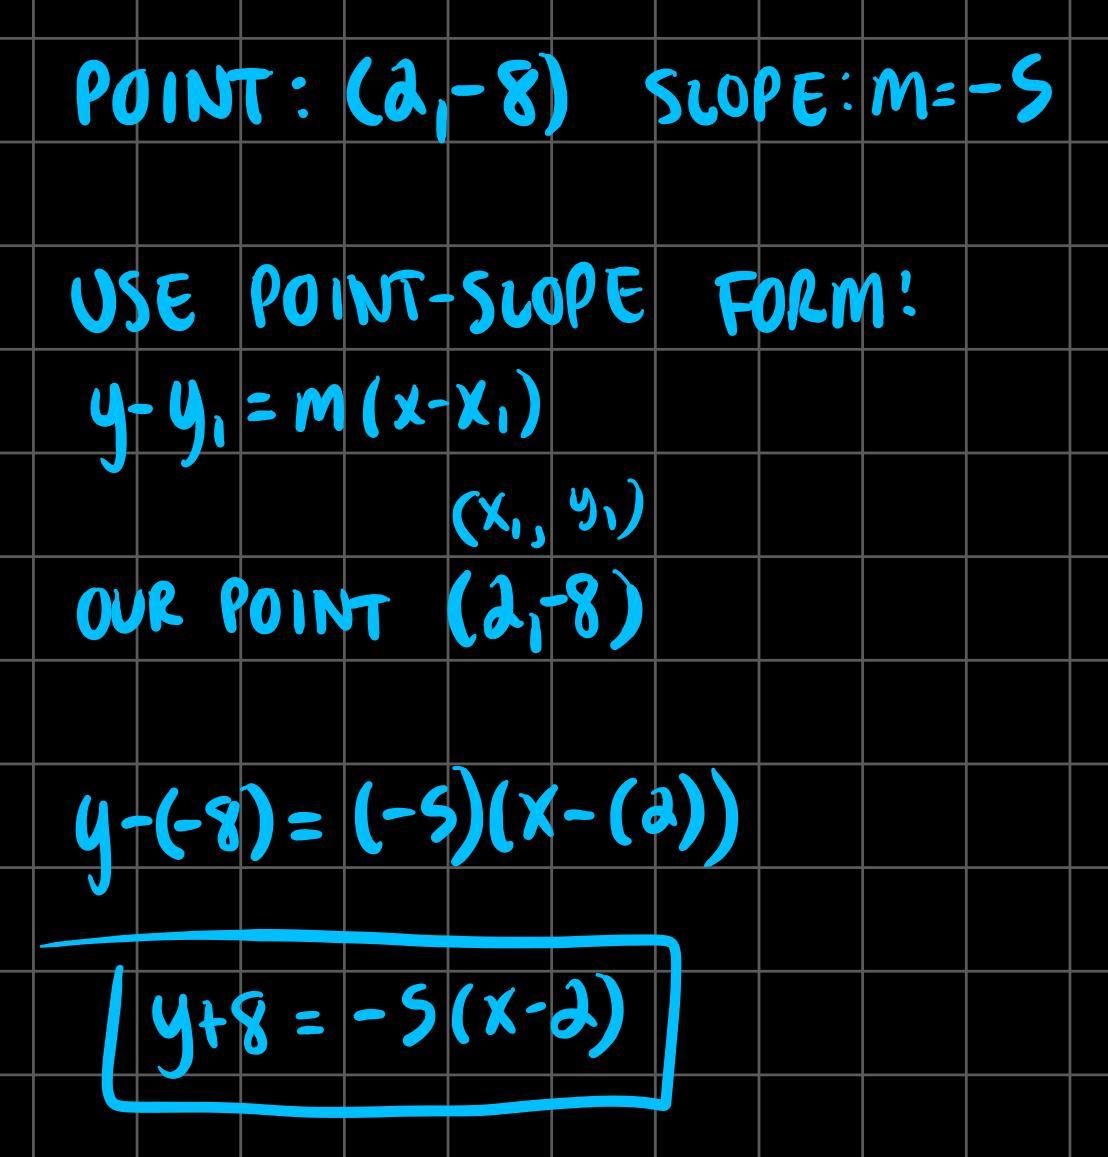 POINT: (2,-8) SLOPE: m=-5
USE POINT-SLOPE FORM!
y-y₁ = m(x-x₁)
(x₁, y₁)
OUR POINT (2,-8)
y-(-8) = (-5)(x-(2))
y+8 = -5(x-2)